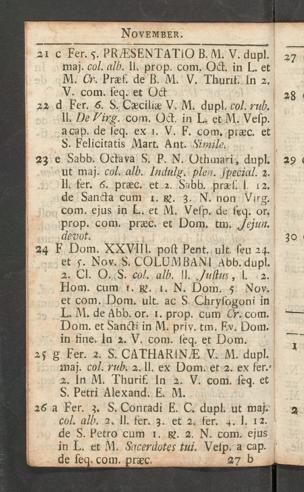 NOVEMBER.
21 c Fer. 5. PRÆSENTATIO B. M. V. dupl.
maj. col. alb. ll. prop. com. Oct. in L. et
M. Cr. Præf. de B. M. V. Thurif. In 2.
V. com. seq. et Oct
22 d Fer. 6. S. Cæciliæ V. M. dupl. col. rub.
ll. De Virg. com. Oct. in L. et M. Vesp.
a cap. de seq. ex 1. V. F. com. præc. et
S. Felicitatis Mart. Ant. Simile.
23 e Sabb. Octava S. P. N. Othmari, dupl.
ut maj. col. alb. Indulg. plen. special. 2.
ll. fer. 6. præc. et 2. Sabb. præs. l. 12.
de Sancta cum 1. ℟. 3. N. non Virg.
com. ejus in L. et M. Vesp. de seq. or.
prop. com. præc. et Dom. tm. Jejun.
devot.
24 F Dom. XXVIII. post Pent. ult. seu 24.
et 5. Nov. S. COLUMBANI Abb. dupl.
2. Cl. O. S. col. alb. ll. Justus, l. 12.
Hom. cum 1. ℟. 1. N. Dom. 5. Nov.
et com. Dom. ult. ac S. Chrysogoni in
L. M. de Abb. or. 1. prop. cum Cr. com.
Dom. et Sancti in M. priv. tm. Ev. Dom.
in fine. In 2. V. com. seq. et Dom.
25 g Fer. 2. S. CATHARINÆ V. M. dupl.
maj. col. rub. 2. ll. ex Dom. et 2. ex fer.
2. In M. Thurif. In 2. V. com. seq. et
S. Petri Alexand. E. M.
26 a Fer. 3. S. Conradi E. C. dupl. ut maj.
col. alb. 2. ll. fer. 3. et 2. fer. 4. l. 12.
de S. Petro cum 1. ℟. 2. N. com. ejus
in L. et M. Sacerdotes tui. Vesp. a cap.
de seq. com. præc.
27 b
27
28
29
30